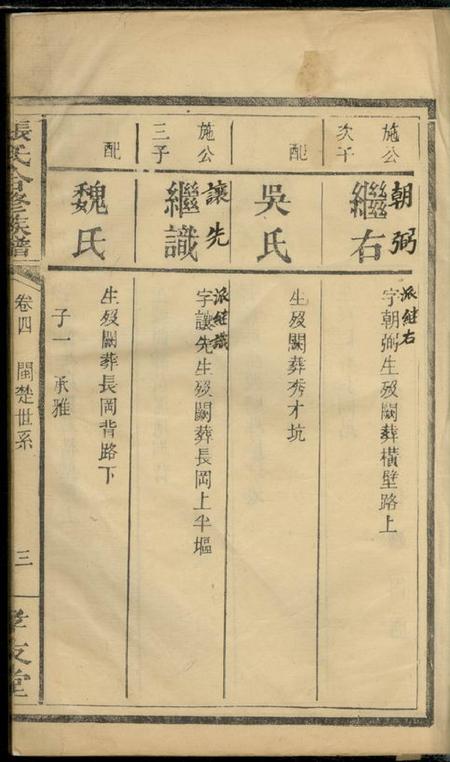 施公
次子
朝弼
繼右
派继右
字朝弼生歿闕葬橫壁路上
配
吳氏
生歿闕葬秀才坑
施公
三子
讓先
繼識
派继識
字讓先生歿闕葬長岡上半堀
配
魏氏
生歿闕葬長岡背路下
子一 承雅
張氏合修族譜
卷四 閩楚世系
三
孝友堂